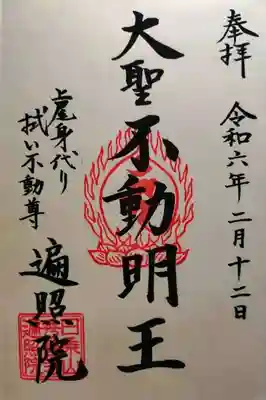 奉拝
令和六年二月十二日
大聖不動明王
上尾身代り
拭い不動尊
遍照院